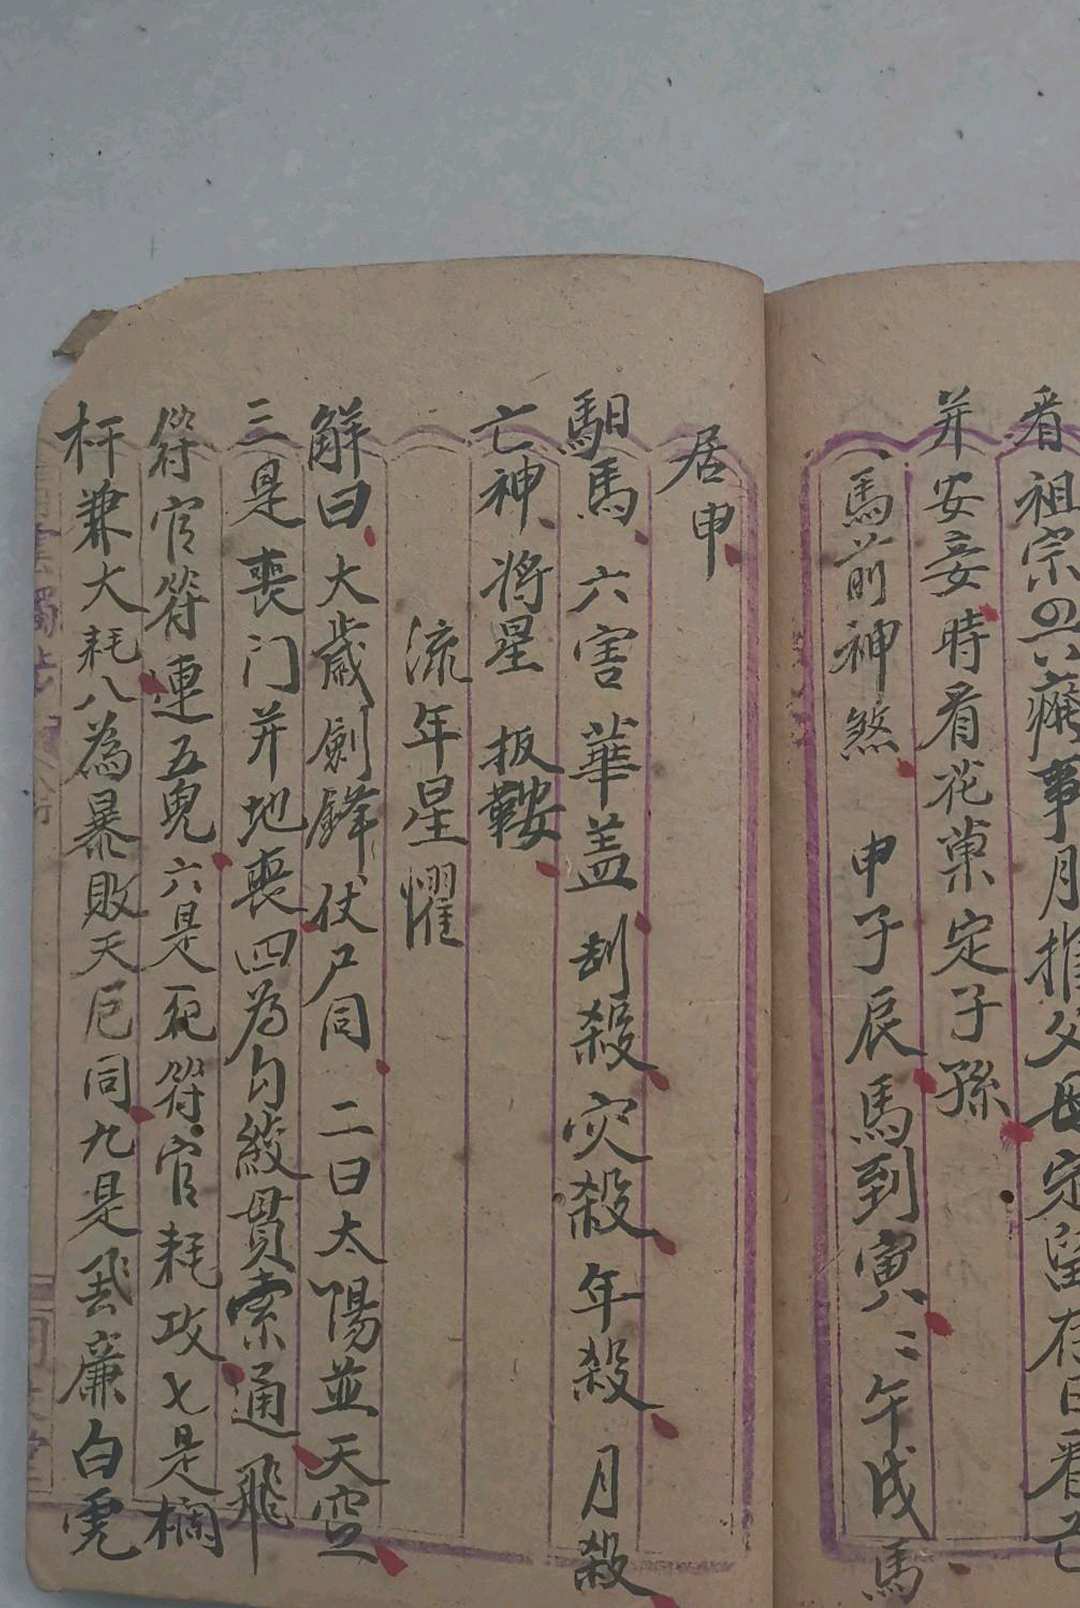 看祖宗四六癆事月推父母宗留存日看亡
并安妾時看花菓定子孫
馬前神煞 申子辰馬到寅 寅午戌馬
居申
馹馬 六害 華盖 刼殺 灾殺 年殺 月殺
亡神 将星 扳鞍
流年星懼
解曰大歲劍鋒伏尸同 二曰太陽並天空
三是喪门并地喪四為勾絞貫索通飛
符官符連五鬼六是死符官耗攻七是欄
杆兼大耗八為暴敗天厄同九是飛廉白虎